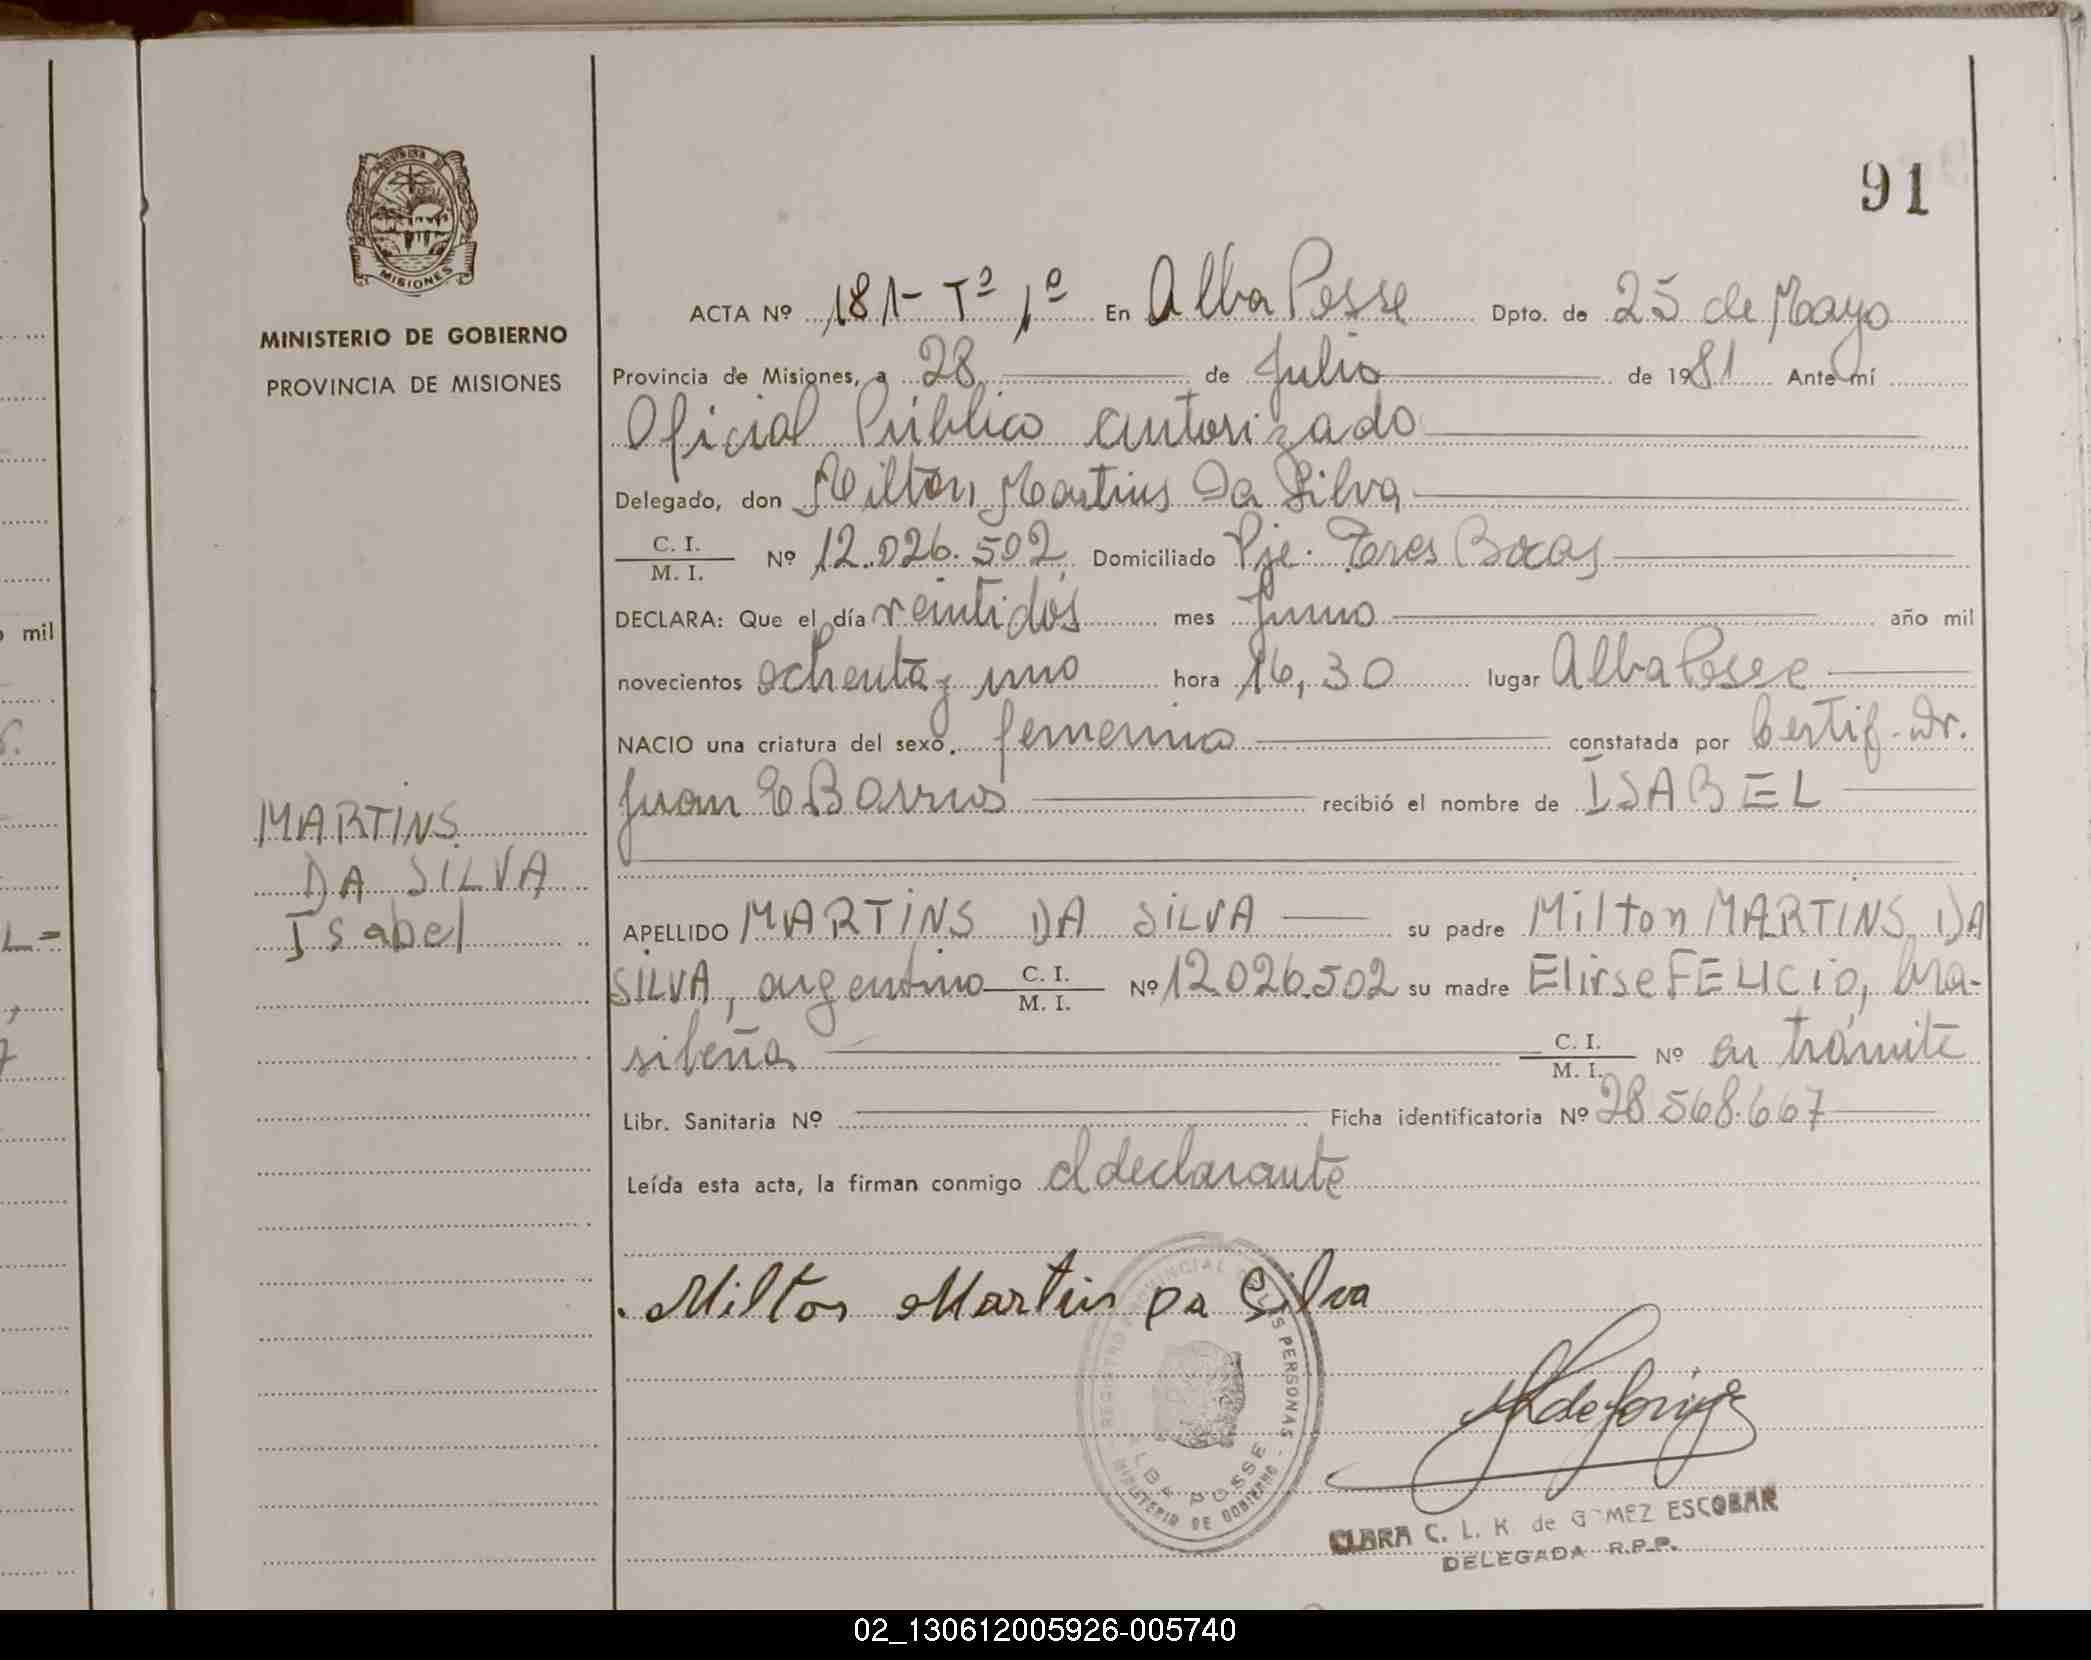 91
PROVINCIA DE
MISIONES
MINISTERIO DE GOBIERNO
PROVINCIA DE MISIONES
ACTA Nº 181- Tº 1º En Alba Posse Dpto. de 25 de Mayo
Provincia de Misiones, a 28 de Julio de 1981 Ante mí
Oficial Público autorizado
Delegado, don Milton Martins Da Silva
C. I.
M. I. Nº 12.026.502 Domiciliado Pje. Tres Bocas
DECLARA: Que el día veintidós mes Junio año mil
novecientos ochenta y uno hora 16,30 lugar Alba Posse
NACIO una criatura del sexo femenino constatada por Certif. Dr.
Juan E Barrios recibió el nombre de ISABEL
MARTINS
DA SILVA
Isabel
APELLIDO MARTINS DA SILVA su padre Milton MARTINS DA
SILVA, argentino C. I.
M. I. Nº 12.026.502 su madre Elirse FELICIO, bra-
sileña C. I.
M. I. Nº en trámite
Libr. Sanitaria Nº Ficha identificatoria Nº 28.568.667
Leída esta acta, la firman conmigo el declarante
Milton Martins Da Silva
REGISTRO PROVINCIAL DE LAS PERSONAS
ALBA POSSE
MINISTERIO DE GOBIERNO
CLARA C. L. K. de GOMEZ ESCOBAR
DELEGADA R.P.P.
mil
02_130612005926-005740